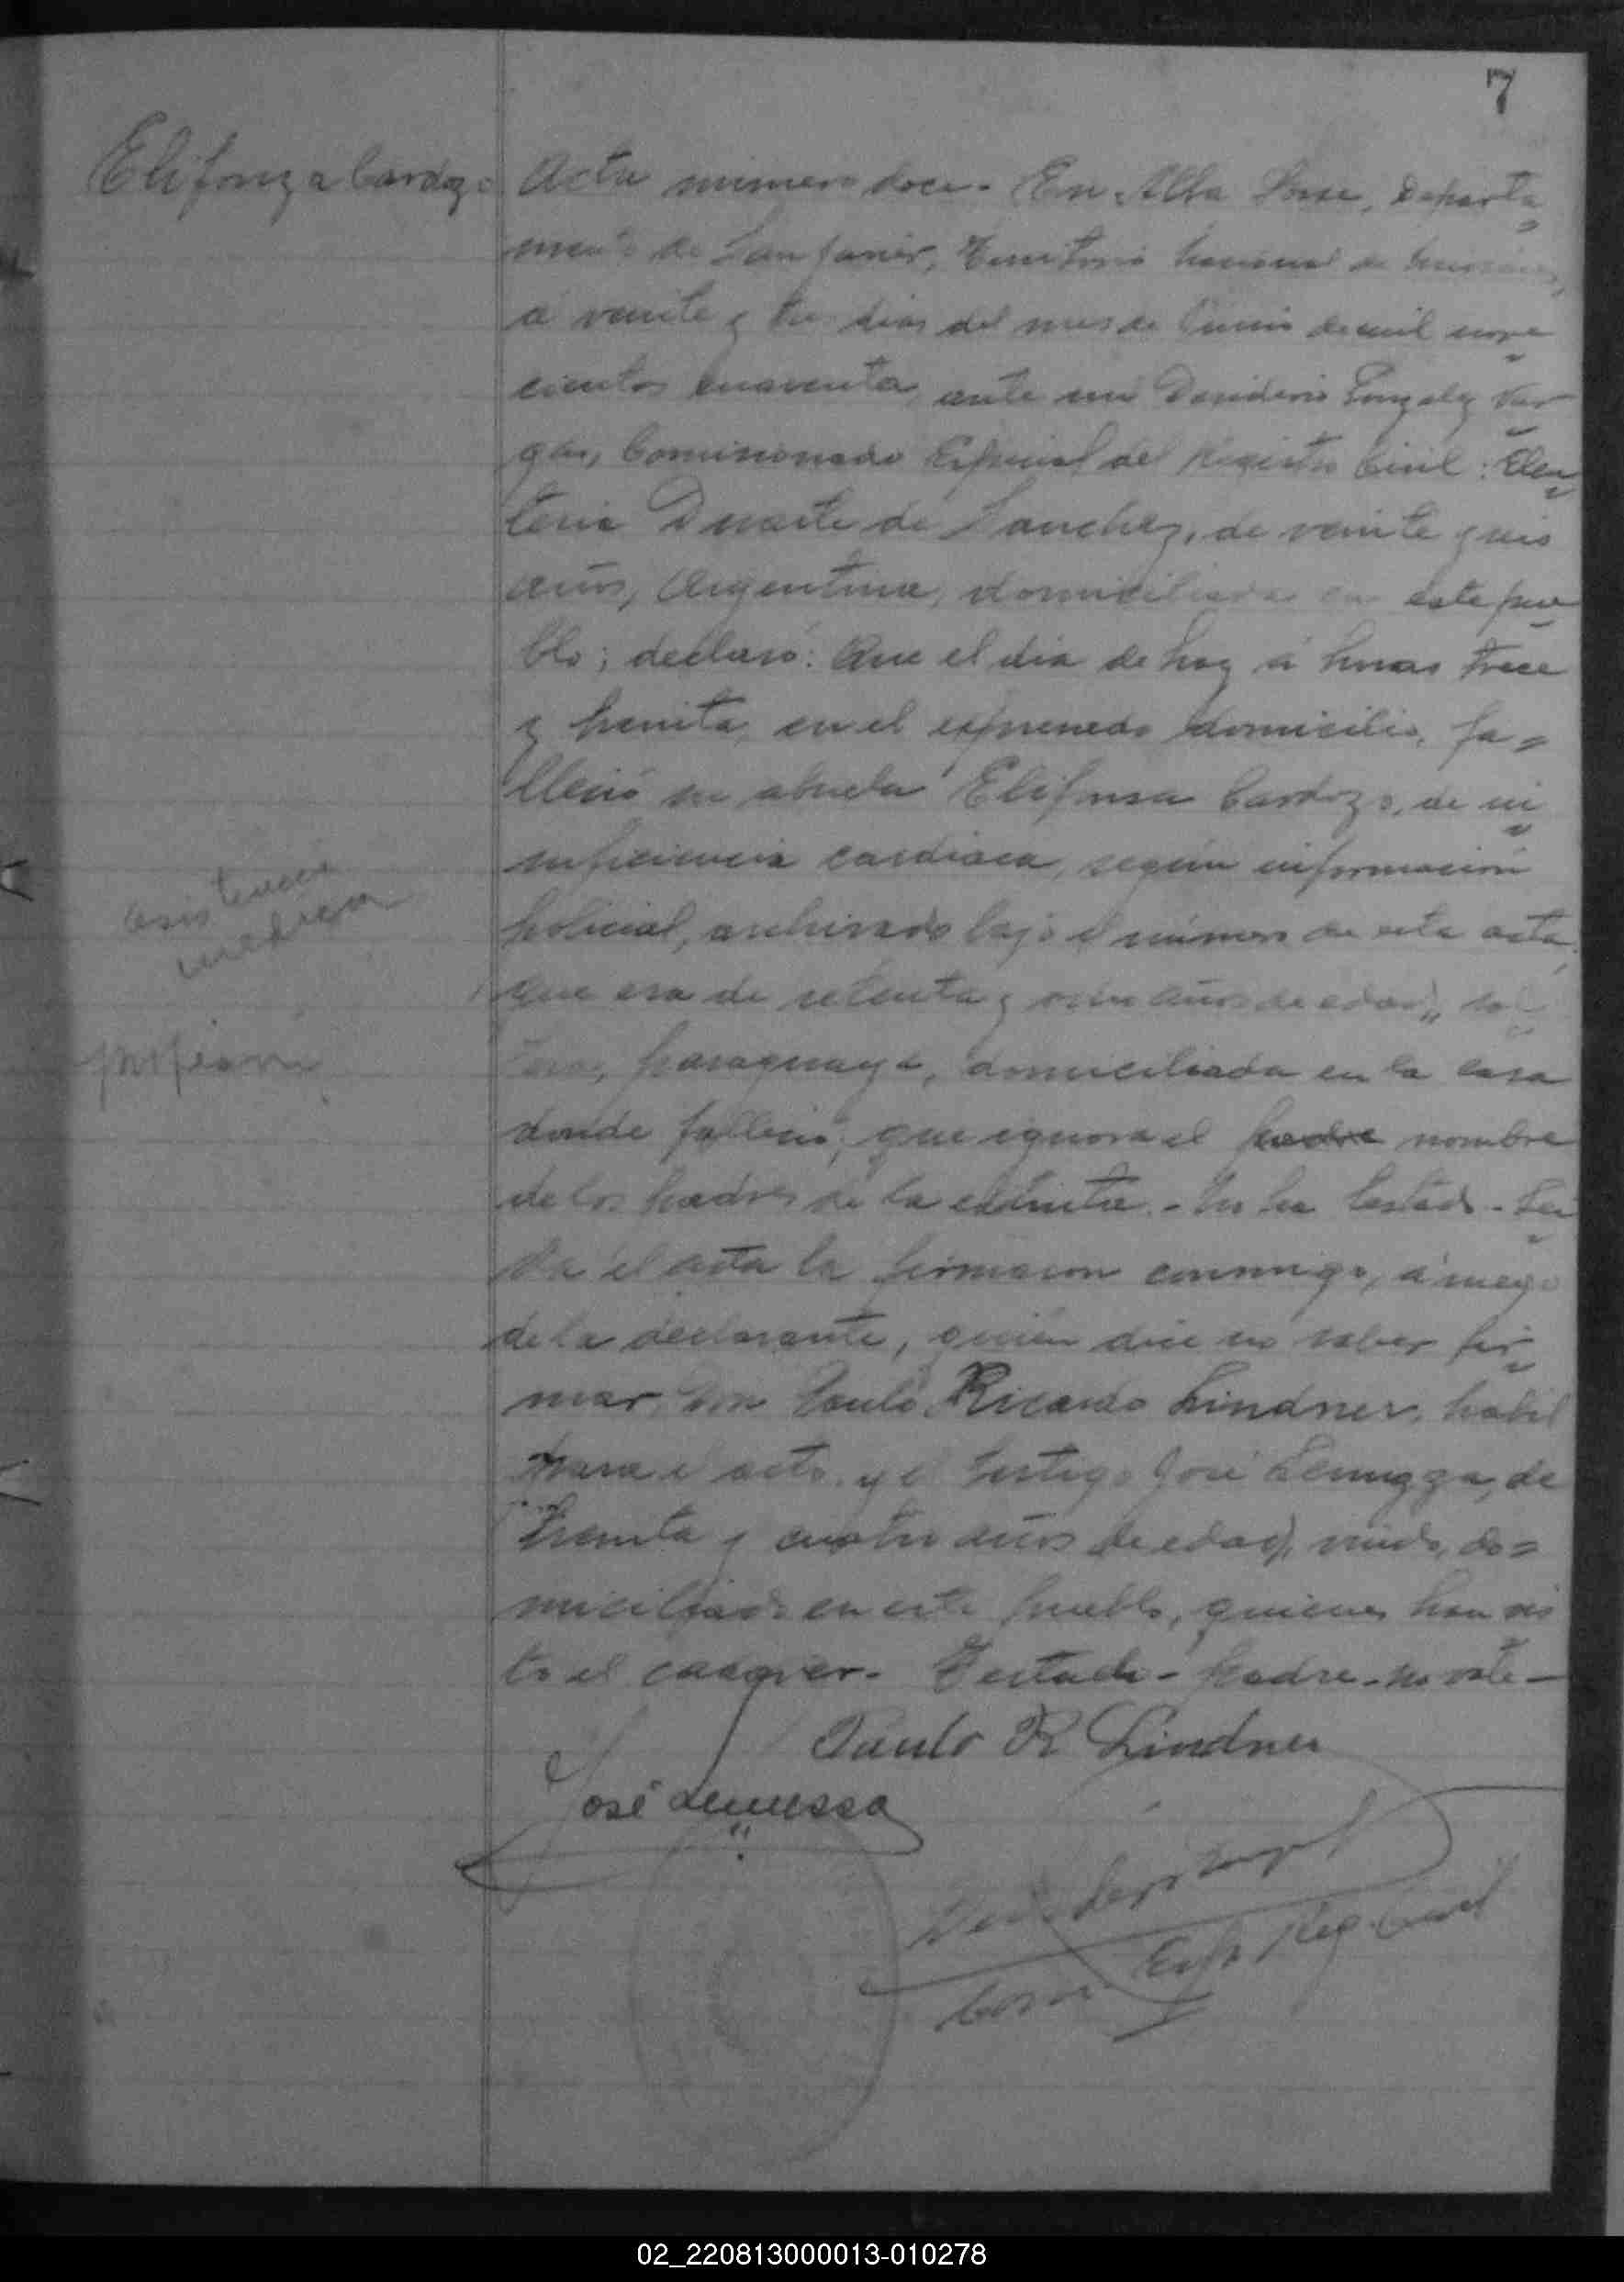 7
Elifonza Cardozo
Acta número doce. En Alba Posse, Departa
mento de San Javier, Territorio Nacional de Misiones,
a veinte y tres dias del mes de Junio de mil nove
cientos cuarenta, ante mi Desiderio Gonzalez Var
gas, Comisionado Especial del Registro Civil: Eleu
teria Duarte de Sanchez, de veinte y seis
años, Argentina, domiciliada en este pue
blo; declaró: Que el dia de hoy á horas trece
y treinta, en el expresado domicilio, fa=
lleció su abuela Elifonsa Cardozo, de in
suficiencia cardiaca, según información
policial, archivado bajo el número de esta acta,
que era de setenta y ocho años de edad, sol
tera, paraguaya, domiciliada en la casa
donde falleció; que ignora el padre nombre
de los padres de la extinta. - No ha testado. - Lei
da el acta la firmaron conmigo, á ruego
de la declarante, quien dice no saber fir
mar, Don Paulo Ricardo Lindner, habil
para el acto, y el testigo José de
treinta y cuatro años de edad, viudo, do=
miciliado en este pueblo, quienes han vis
to el cadaver. Testado - padre - no vale -
asistencia
medica
profesion
Paulo R Lindner
José
Esp Reg. Civil
02_220813000013-010278